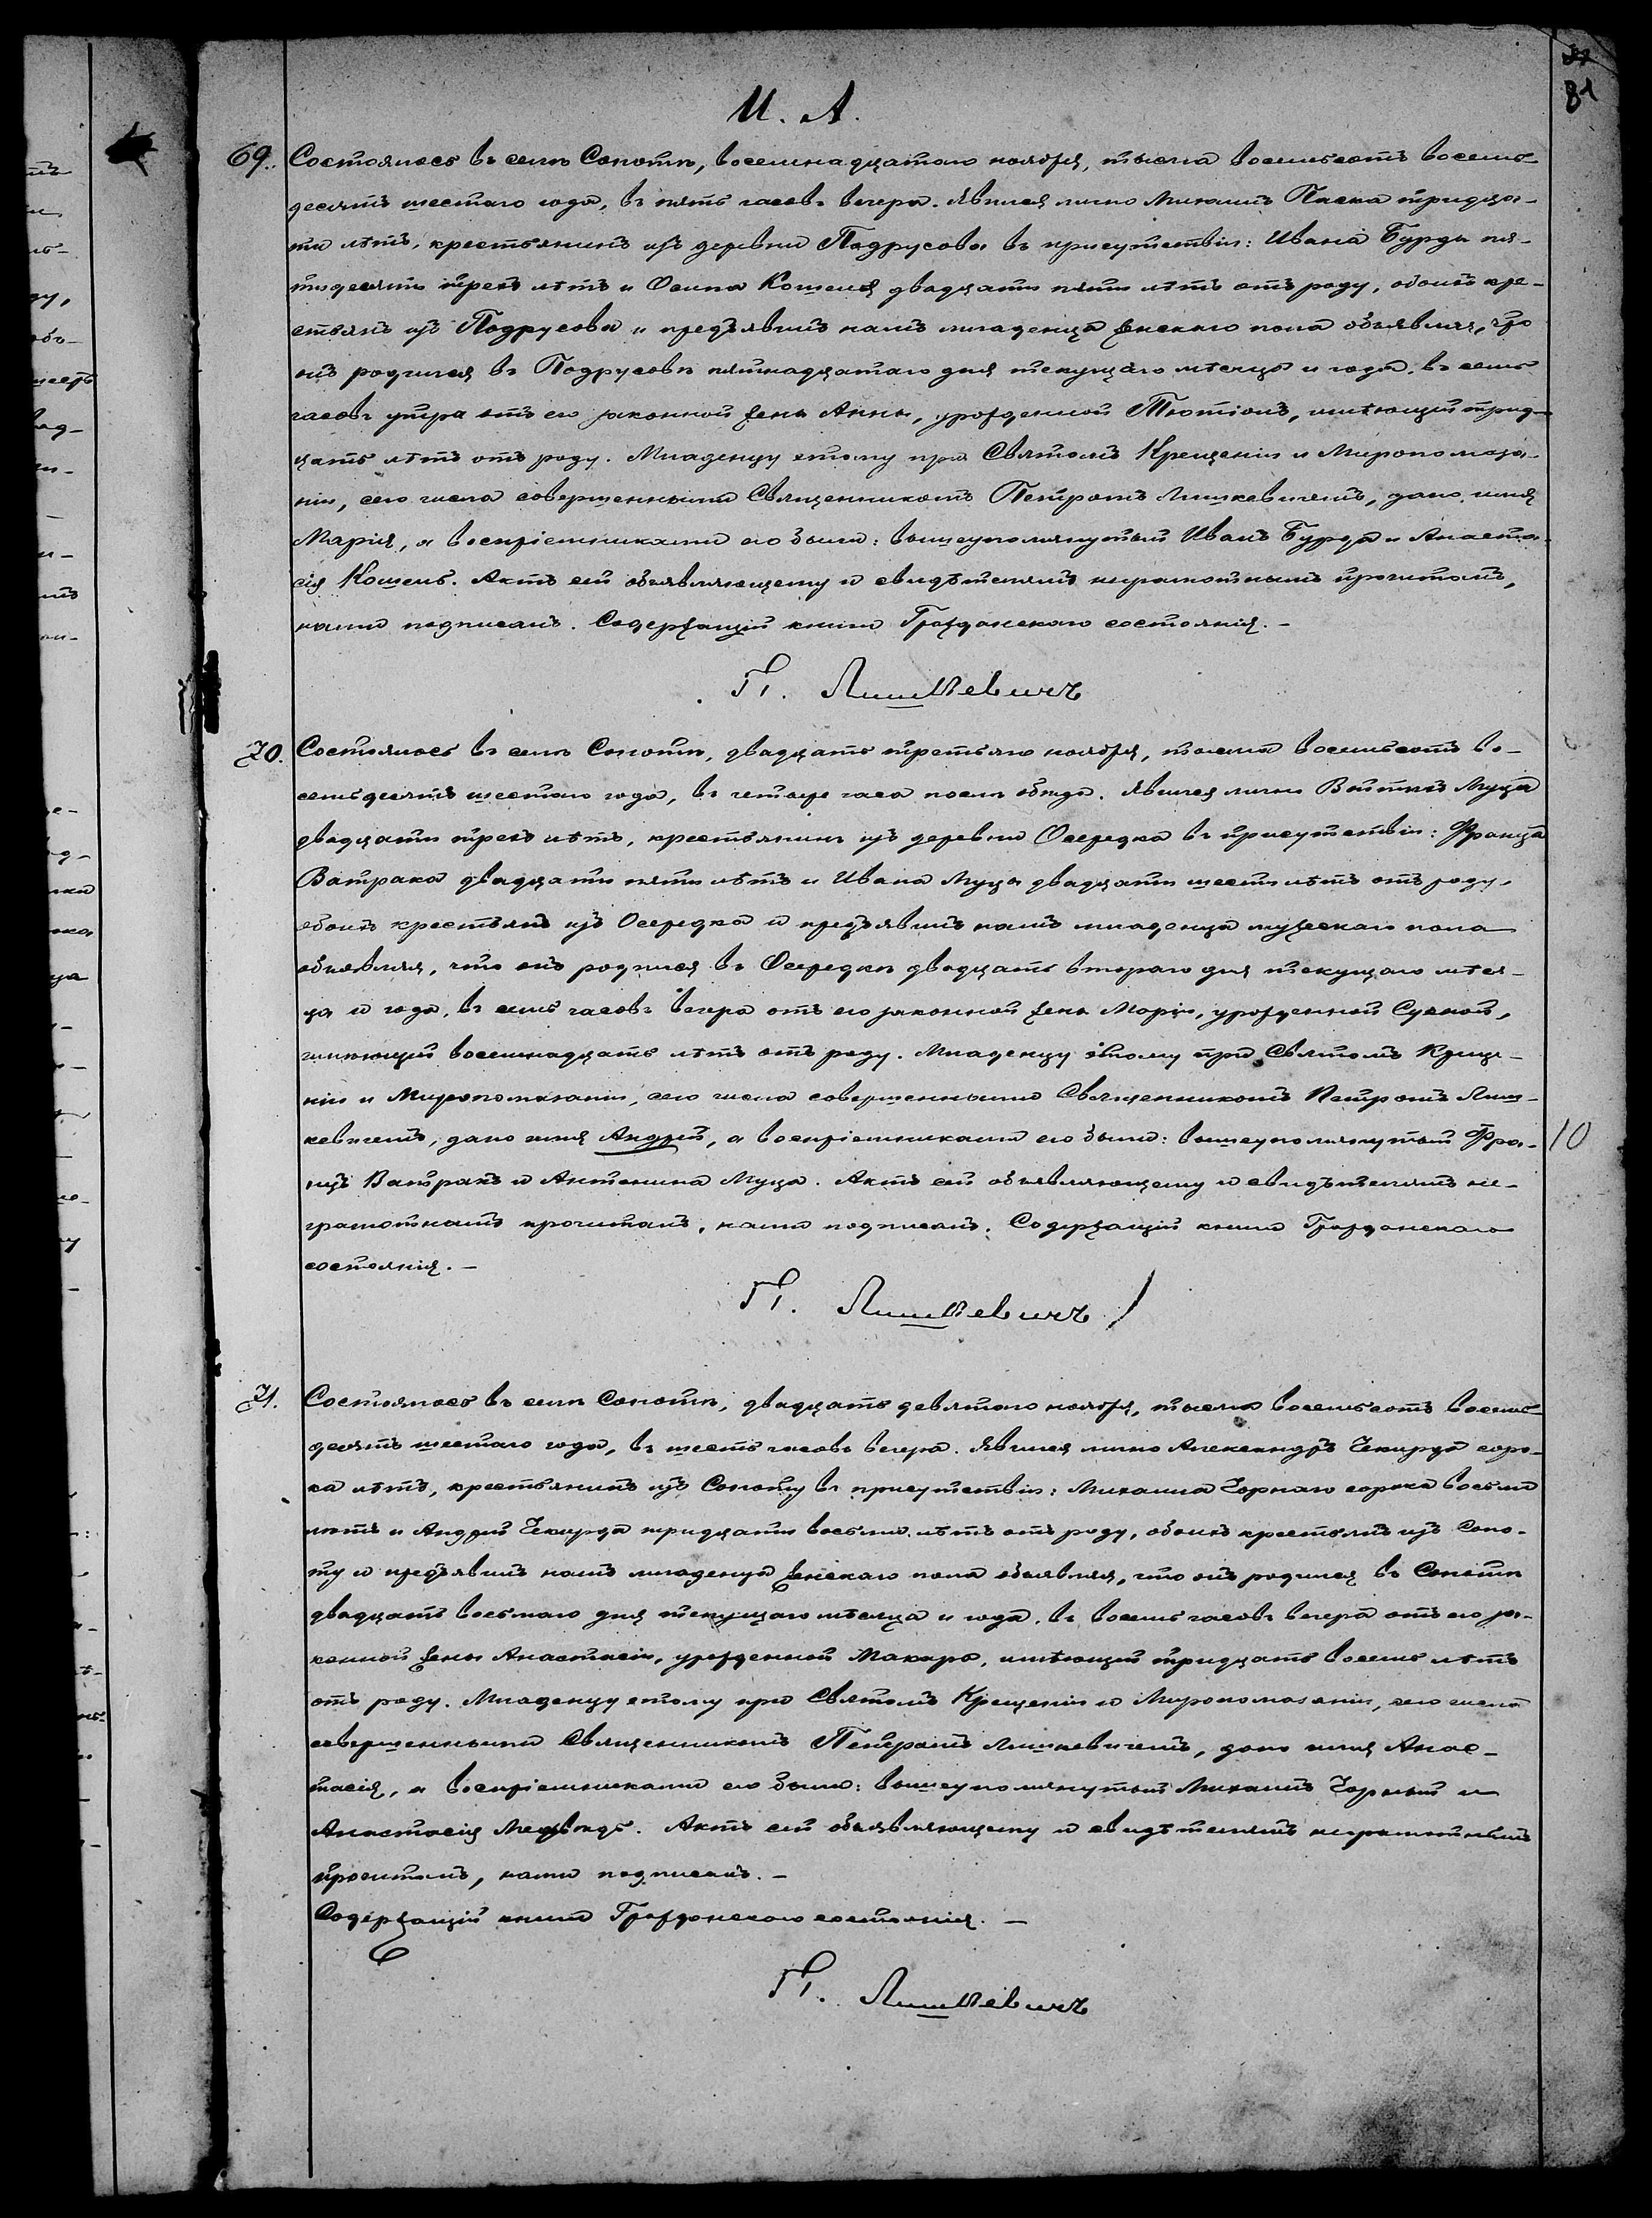 И. А.
81
69. Состоялось въ селѣ Сопотѣ, восемнадцатаго ноября, тысяча восемьсотъ восемь-
десятъ шестаго года, въ пять часовъ вечера. Явился лично Михаилъ Паска тридца-
ти лѣтъ, крестьянинъ изъ деревни Подрусова въ присутствіи: Ивана Бурды пя-
тидесяти трехъ лѣтъ и Осипа Кошеля двадцати пяти лѣтъ отъ роду, обоихъ кре-
стьянъ изъ Подрусова и предъявилъ намъ младенца женскаго пола объявляя, что
онъ родился въ Подрусовѣ пятнадцатаго дня текущаго мѣсяца и года, въ семь
часовъ утра отъ его законной жены Анны, урожденной Тютіонъ, имѣющей трид-
цать лѣтъ отъ роду. Младенцу етому при Святомъ Крещеніи и Миропомаза-
ніи, сего числа совершенными Священникомъ Петромъ Лишкевичемъ, дано имя
Марія, а воспріемниками его были: вышеупомянутый Иванъ Бурда и Анаста-
сія Кошель. Актъ сей объявляющему и свидѣтелямъ неграмотнымъ прочитанъ,
нами подписанъ. Содержащій книги Гражданскаго состоянія. –
П. Лишкевичъ
70. Состоялось въ селѣ Сопотѣ, двадцать третьяго ноября, тысяча восемьсотъ во-
семьдесятъ шестаго года, въ четыре часа послѣ обѣда. Явился лично Войтѣхъ Муца
двадцати трехъ лѣтъ, крестьянинъ изъ деревни Осередка въ присутствіи: Франца
Ватрака двадцати пяти лѣтъ и Ивана Муцы двадцати шести лѣтъ отъ роду,
обоихъ крестьянъ изъ Осередка и предъявилъ намъ младенца мужескаго пола
объявляя, что онъ родился въ Осередкѣ двадцать втораго дня текущаго мѣся-
ца и года, въ семь часовъ вечера отъ его законной жены Маріи, урожденной Сухой,
имѣющей восемнадцать лѣтъ отъ роду. Младенцу этому при Святомъ Креще-
ніи и Миропомазаніи, сего числа совершенными Священникомъ Петромъ Лиш-
кевичемъ, дано имя Андрей, а воспріемниками его были: вышеупомянутый Фра-
10
нцъ Ватракъ и Антонина Муца. Актъ сей объявляющему и свидѣтелямъ не-
грамотнымъ прочитанъ, нами подписанъ. Содержащій книги Гражданскаго
состоянія. –
П. Лишкевичъ
71. Состоялось въ селѣ Сопотѣ, двадцать девятаго ноября, тысяча восемьсотъ восемь-
десятъ шестаго года, въ шесть часовъ вечера. Явился лично Александръ Чекирда соро-
ка лѣтъ, крестьянинъ изъ Сопоту въ присутствіи: Михаила Чорнаго сорока восьми
лѣтъ и Андрей Чекирда тридцати восьми лѣтъ отъ роду, обоихъ крестьянъ изъ Сопо-
ту и предъявилъ намъ младенца женскаго пола объявляя, что онъ родился въ Сопотѣ
двадцать восьмаго дня текущаго мѣсяца и года, въ восемь часовъ вечера отъ его за-
конной жены Анастасіи, урожденной Макара, имѣющей тридцать восемь лѣтъ
отъ роду. Младенцу етому при Святомъ Крещеніи и Миропомазаніи, сего числа
совершенными Священникомъ Петромъ Лишкевичемъ, дано имя Анас-
тасія, а воспріемниками его были: вышеупомянутый Михаилъ Чорный и
Анастасія Медвѣдь. Актъ сей объявляющему и свидѣтелямъ неграмотнымъ
прочитанъ, нами подписанъ. –
Содержащій книги Гражданскаго состоянія. –
П. Лишкевичъ